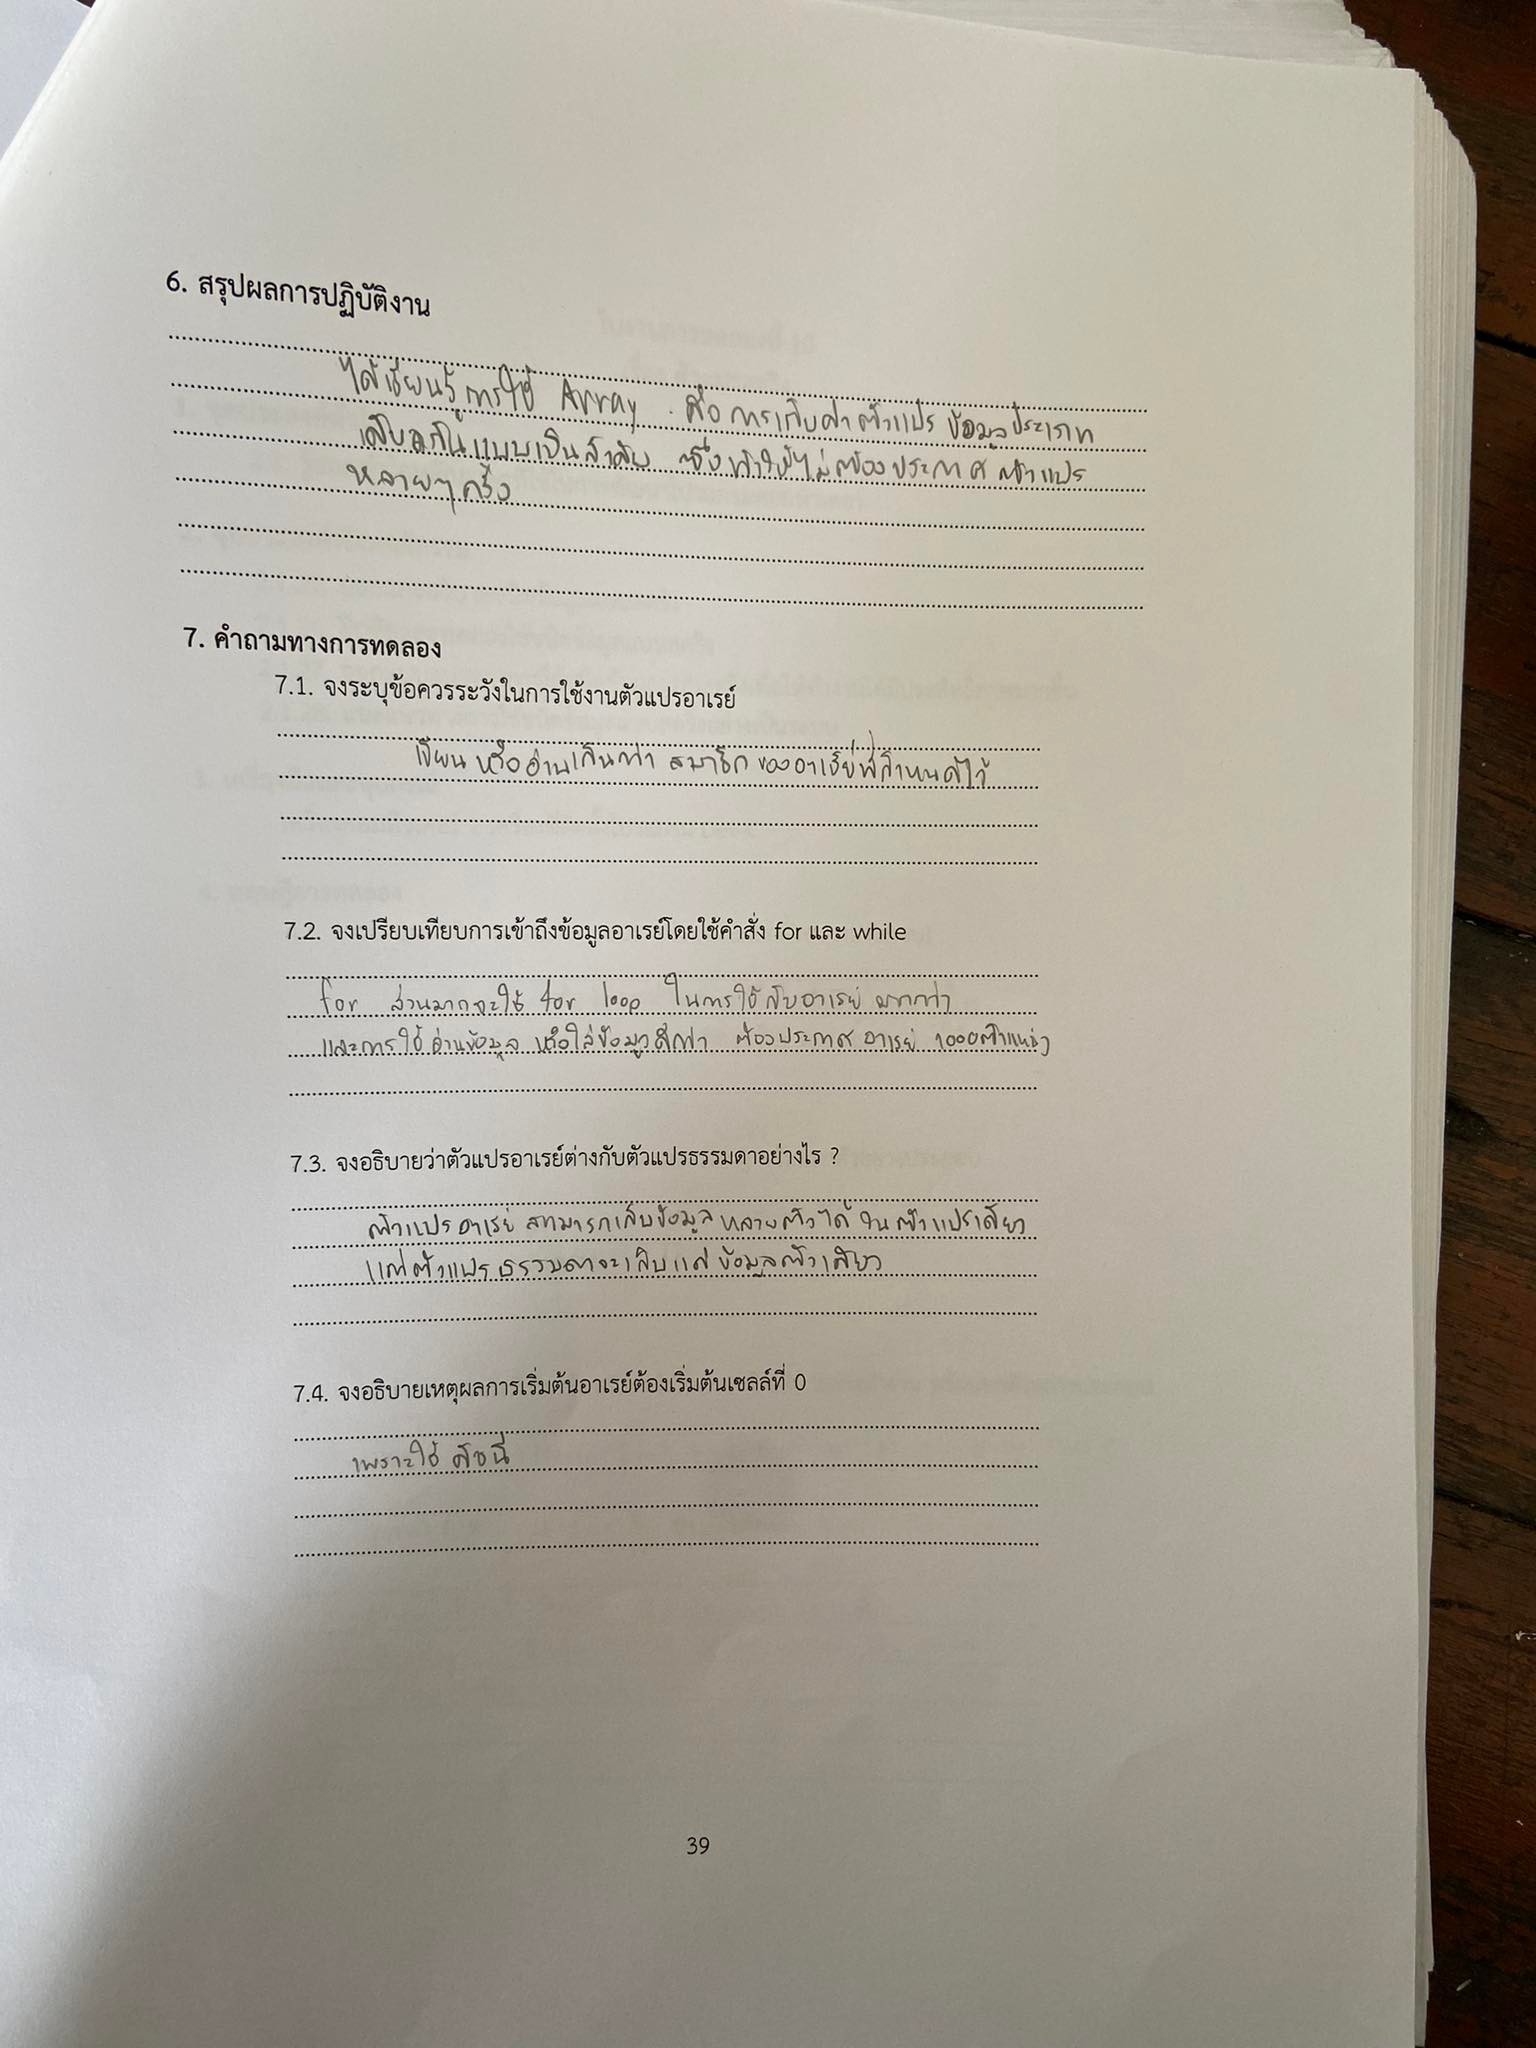 6. สรุปผลการปฏิบัติงาน
ได้เรียนรู้การใช้ Array . คือ การเก็บค่าตัวแปร ข้อมูลประเภท
เดียวกันแบบเป็นลำดับ ซึ่งทำให้ไม่ต้องประกาศตัวแปร
หลายๆครั้ง
7. คำถามทางการทดลอง
7.1. จงระบุข้อควรระวังในการใช้งานตัวแปรอาเรย์
เขียน หรือ อ่านเกินกว่า สมาชิก ของอาเรย์ที่กำหนดไว้
7.2. จงเปรียบเทียบการเข้าถึงข้อมูลอาเรย์โดยใช้คำสั่ง for และ while
for ส่วนมากจะใช้ for loop ในการใช้กับอาเรย์ มากกว่า
และการใช้อ่านข้อมูล หรือใส่ข้อมูลดีกว่า ต้องประกาศ อาเรย์ 1000ตำแหน่ง
7.3. จงอธิบายว่าตัวแปรอาเรย์ต่างกับตัวแปรธรรมดาอย่างไร ?
ตัวแปรอาเรย์ สามารถเก็บข้อมูลหลายตัวได้ ในตัวแปรเดียว
แต่ตัวแปรธรรมดาจะเก็บแค่ข้อมูลตัวเดียว
7.4. จงอธิบายเหตุผลการเริ่มต้นอาเรย์ต้องเริ่มต้นเซลล์ที่ 0
เพราะใช้ ดัชนี
39